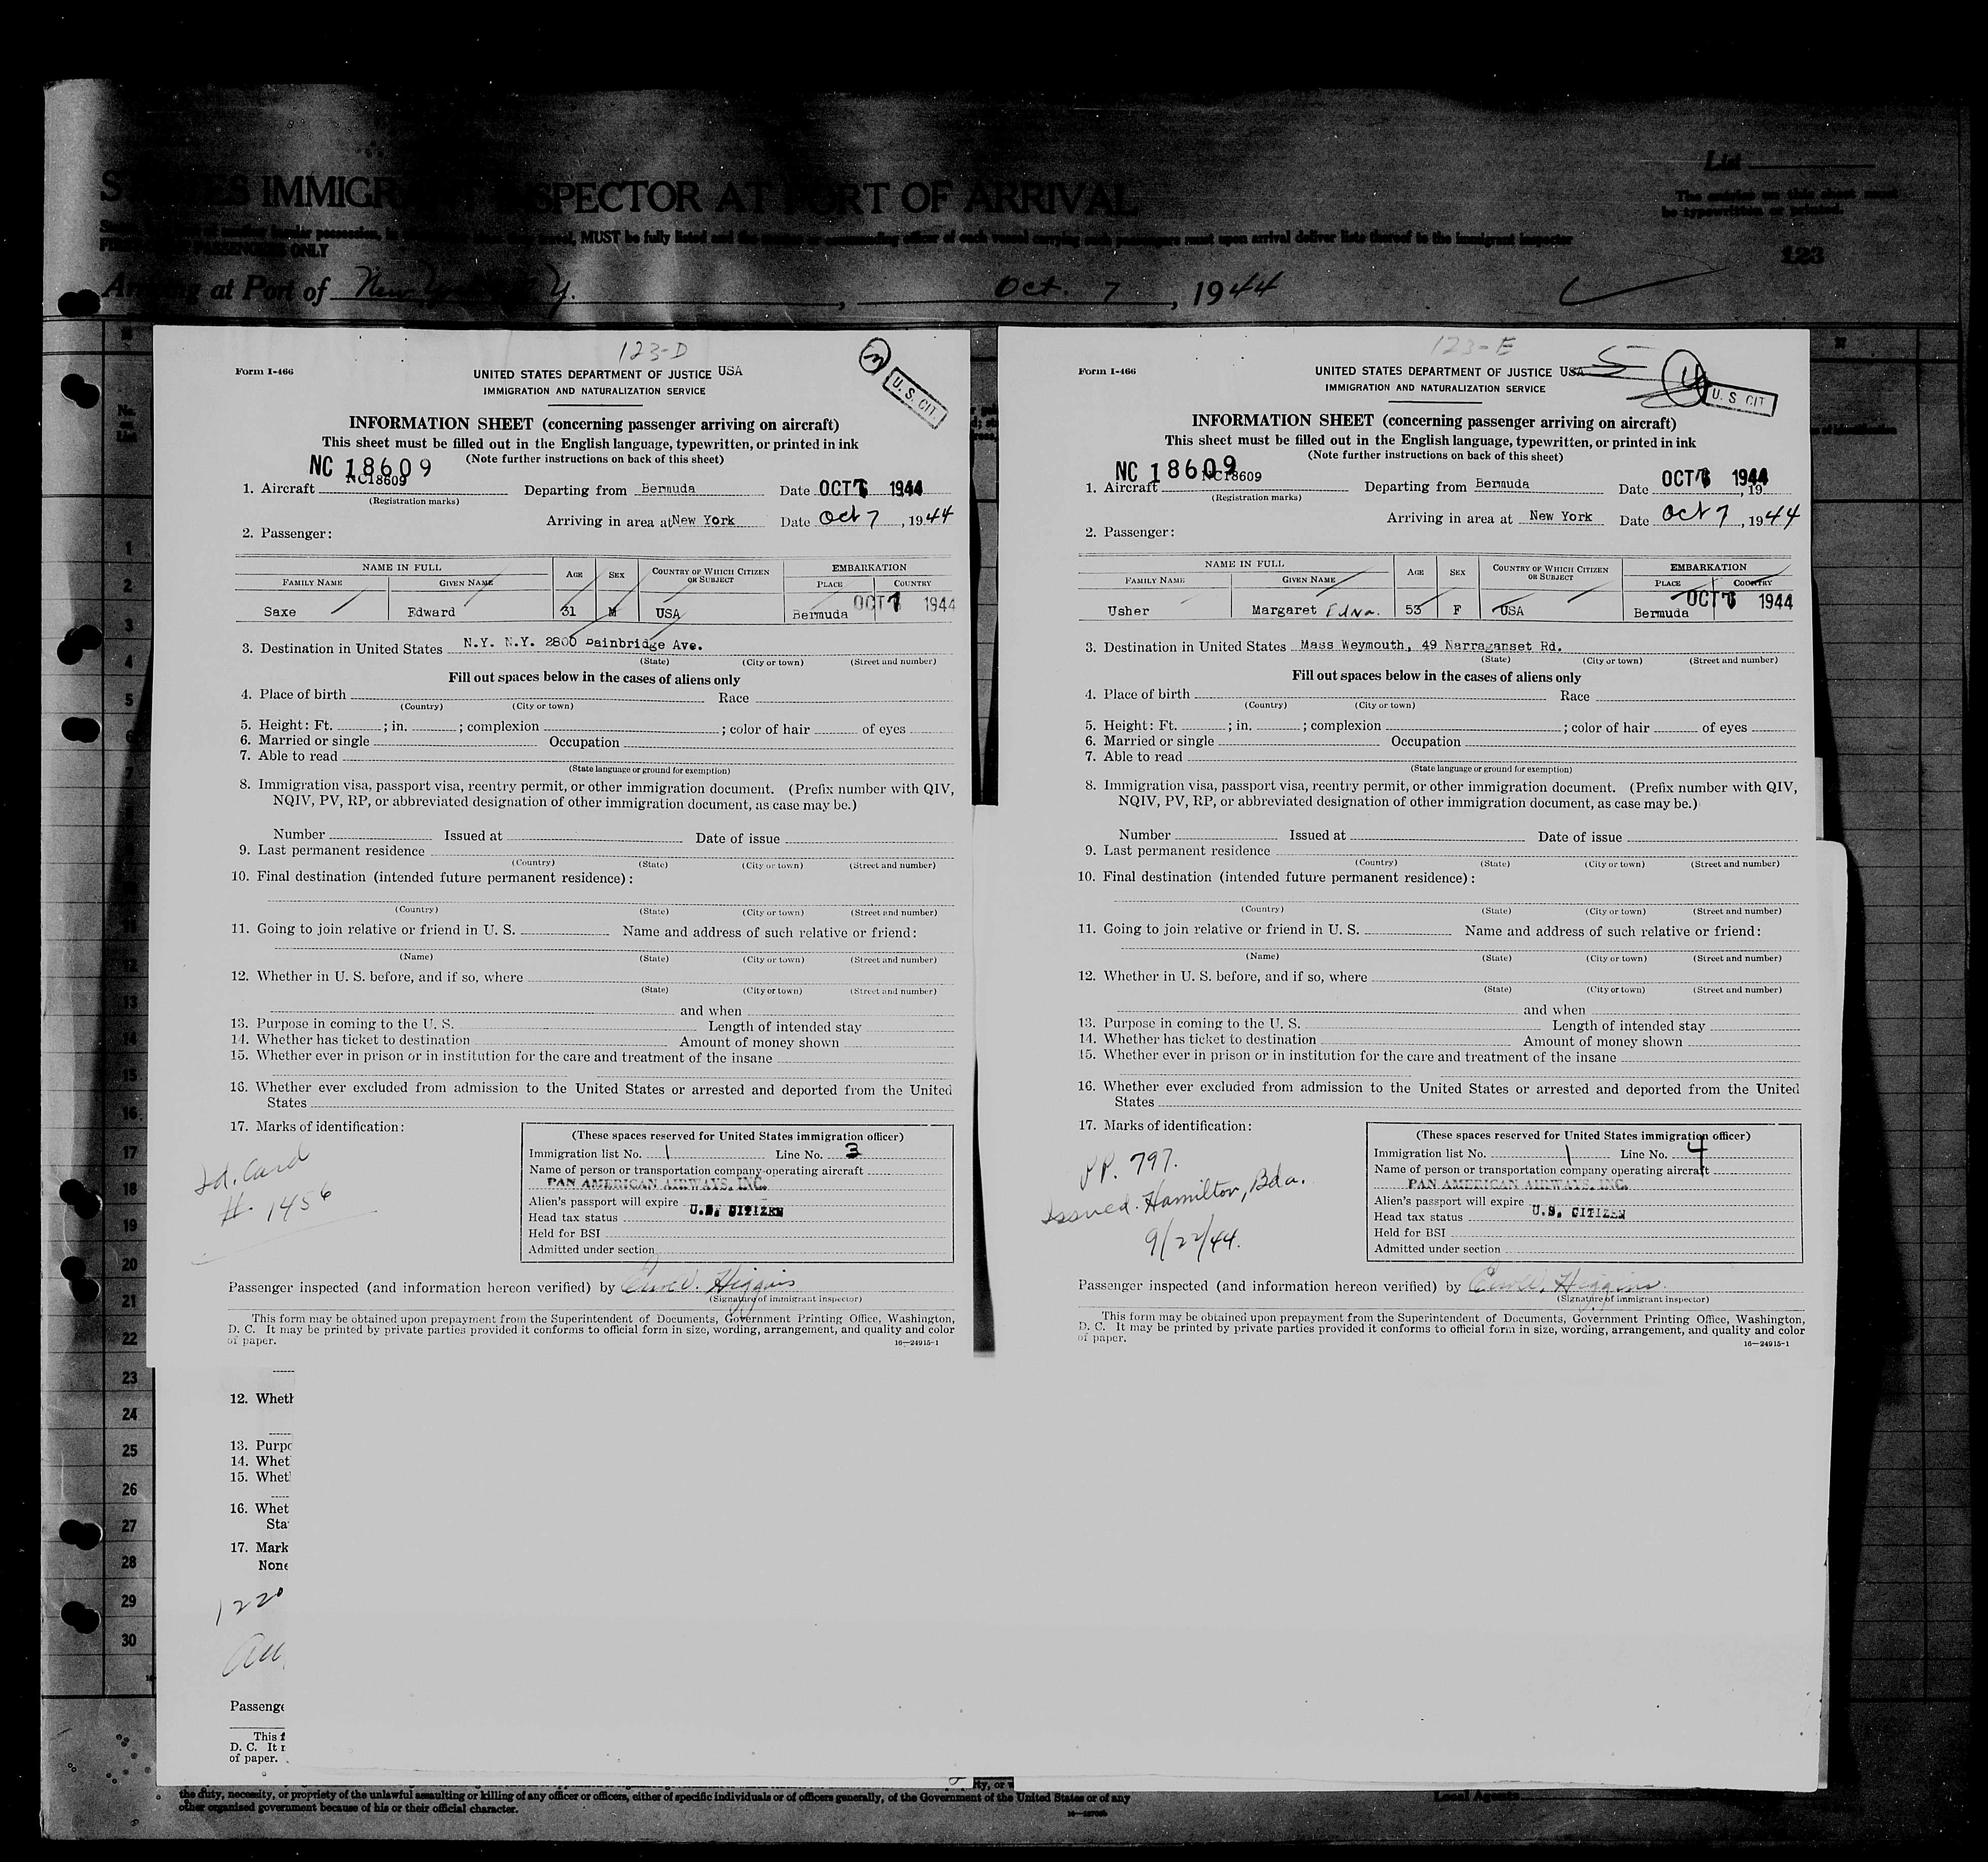 List
STATES IMMIGRANT INSPECTOR AT PORT OF ARRIVAL
The entries on this sheet must
be typewritten or printed.
MUST be fully listed and the master or commanding officer of each vessel carrying such passengers must upon arrival deliver lists thereof to the immigrant inspector
ONLY
123
Arriving at Port of New York N.Y., Oct. 7, 1944
123-D
3
Form I-466
UNITED STATES DEPARTMENT OF JUSTICE USA
U. S. CIT.
IMMIGRATION AND NATURALIZATION SERVICE
INFORMATION SHEET (concerning passenger arriving on aircraft)
This sheet must be filled out in the English language, typewritten, or printed in ink
(Note further instructions on back of this sheet)
NC 18609
1. Aircraft NC18609 Departing from Bermuda Date OCT 7 1944
(Registration marks)
Arriving in area at New York Date Oct 7, 1944
2. Passenger:
NAME IN FULL AGE SEX COUNTRY OF WHICH CITIZEN OR SUBJECT EMBARKATION
FAMILY NAME GIVEN NAME PLACE COUNTRY
Saxe Edward 31 M USA Bermuda OCT 7 1944
3. Destination in United States N.Y. N.Y. 2800 Bainbridge Ave.
(State) (City or town) (Street and number)
Fill out spaces below in the cases of aliens only
4. Place of birth Race
(Country) (City or town)
5. Height: Ft. ; in. ; complexion ; color of hair of eyes
6. Married or single Occupation
7. Able to read
(State language or ground for exemption)
8. Immigration visa, passport visa, reentry permit, or other immigration document. (Prefix number with QIV,
NQIV, PV, RP, or abbreviated designation of other immigration document, as case may be.)
Number Issued at Date of issue
9. Last permanent residence
(Country) (State) (City or town) (Street and number)
10. Final destination (intended future permanent residence):
(Country) (State) (City or town) (Street and number)
11. Going to join relative or friend in U. S. Name and address of such relative or friend:
(Name) (State) (City or town) (Street and number)
12. Whether in U. S. before, and if so, where
(State) (City or town) (Street and number)
and when
13. Purpose in coming to the U. S. Length of intended stay
14. Whether has ticket to destination Amount of money shown
15. Whether ever in prison or in institution for the care and treatment of the insane
16. Whether ever excluded from admission to the United States or arrested and deported from the United
States
17. Marks of identification:
Id. Card
#. 1456
(These spaces reserved for United States immigration officer)
Immigration list No. 1 Line No. 3
Name of person or transportation company operating aircraft
PAN AMERICAN AIRWAYS, INC.
Alien's passport will expire
Head tax status U.S. CITIZEN
Held for BSI
Admitted under section
Passenger inspected (and information hereon verified) by Higgins
(Signature of immigrant inspector)
This form may be obtained upon prepayment from the Superintendent of Documents, Government Printing Office, Washington,
D. C. It may be printed by private parties provided it conforms to official form in size, wording, arrangement, and quality and color
of paper.
16—24915-1
123-E
5
4
Form I-466
UNITED STATES DEPARTMENT OF JUSTICE USA
U. S CIT
IMMIGRATION AND NATURALIZATION SERVICE
INFORMATION SHEET (concerning passenger arriving on aircraft)
This sheet must be filled out in the English language, typewritten, or printed in ink
(Note further instructions on back of this sheet)
NC 18609
1. Aircraft NC18609 Departing from Bermuda Date OCT 7 1944, 19
(Registration marks)
Arriving in area at New York Date Oct 7, 1944
2. Passenger:
NAME IN FULL AGE SEX COUNTRY OF WHICH CITIZEN OR SUBJECT EMBARKATION
FAMILY NAME GIVEN NAME PLACE COUNTRY
Usher Margaret Edna. 53 F USA Bermuda OCT 7 1944
3. Destination in United States Mass Weymouth, 49 Narraganset Rd.
(State) (City or town) (Street and number)
Fill out spaces below in the cases of aliens only
4. Place of birth Race
(Country) (City or town)
5. Height: Ft. ; in. ; complexion ; color of hair of eyes
6. Married or single Occupation
7. Able to read
(State language or ground for exemption)
8. Immigration visa, passport visa, reentry permit, or other immigration document. (Prefix number with QIV,
NQIV, PV, RP, or abbreviated designation of other immigration document, as case may be.)
Number Issued at Date of issue
9. Last permanent residence
(Country) (State) (City or town) (Street and number)
10. Final destination (intended future permanent residence):
(Country) (State) (City or town) (Street and number)
11. Going to join relative or friend in U. S. Name and address of such relative or friend:
(Name) (State) (City or town) (Street and number)
12. Whether in U. S. before, and if so, where
(State) (City or town) (Street and number)
and when
13. Purpose in coming to the U. S. Length of intended stay
14. Whether has ticket to destination Amount of money shown
15. Whether ever in prison or in institution for the care and treatment of the insane
16. Whether ever excluded from admission to the United States or arrested and deported from the United
States
17. Marks of identification:
PP. 797.
Issued. Hamilton, Bda.
9/22/44.
(These spaces reserved for United States immigration officer)
Immigration list No. 1 Line No. 4
Name of person or transportation company operating aircraft
PAN AMERICAN AIRWAYS, INC.
Alien's passport will expire
Head tax status U.S. CITIZEN
Held for BSI
Admitted under section
Passenger inspected (and information hereon verified) by Higgins
(Signature of immigrant inspector)
This form may be obtained upon prepayment from the Superintendent of Documents, Government Printing Office, Washington,
D. C. It may be printed by private parties provided it conforms to official form in size, wording, arrangement, and quality and color
of paper.
16—24915-1
12. Wheth
13. Purpo
14. Whet
15. Whet
16. Whet
Sta
17. Mark
None
1220
Passenge
This f
D. C. It r
of paper.
No. on List
1
2
3
4
5
6
7
11
12
13
14
15
16
17
18
19
20
21
22
23
24
25
26
27
28
29
30
the duty, necessity, or propriety of the unlawful assaulting or killing of any officer or officers, either of specific individuals or of officers generally, of the Government of the United States or of any
other organised government because of his or their official character.
Local Agents